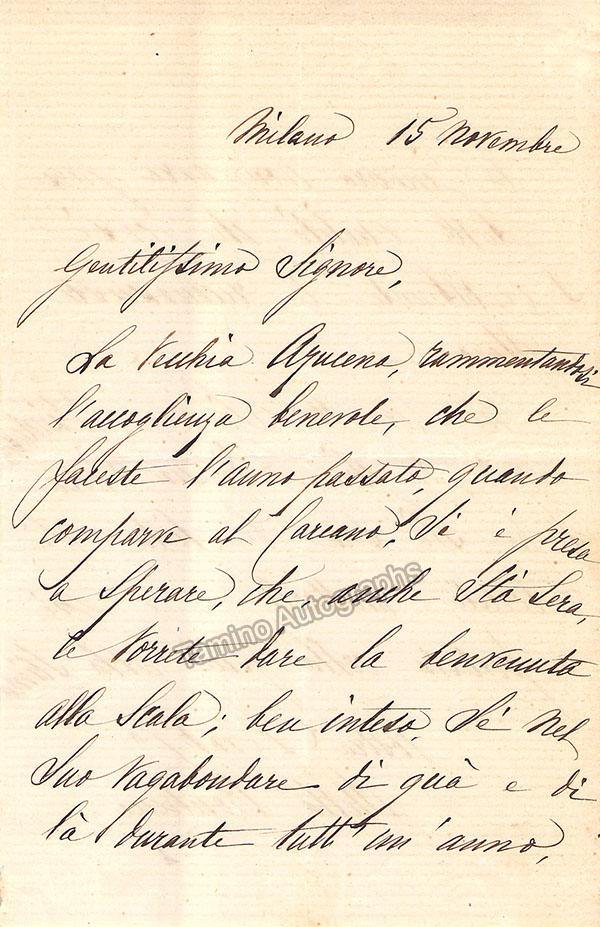 Milano 15 Novembre
Gentilissimo Signore,
La Vecchia Azucena, rammentandosi
l'accoglienza benevole, che le
faceste l'anno passato, quando
comparve al Carcano, Si è presa
a Sperare, che, anche Stà Sera,
le Vorrete dare la benvenuta
alla Scala; ben inteso, Sé nel
Suo Vagabondare di quà e di
là durante tutt'un'anno,
Tamino Autographs